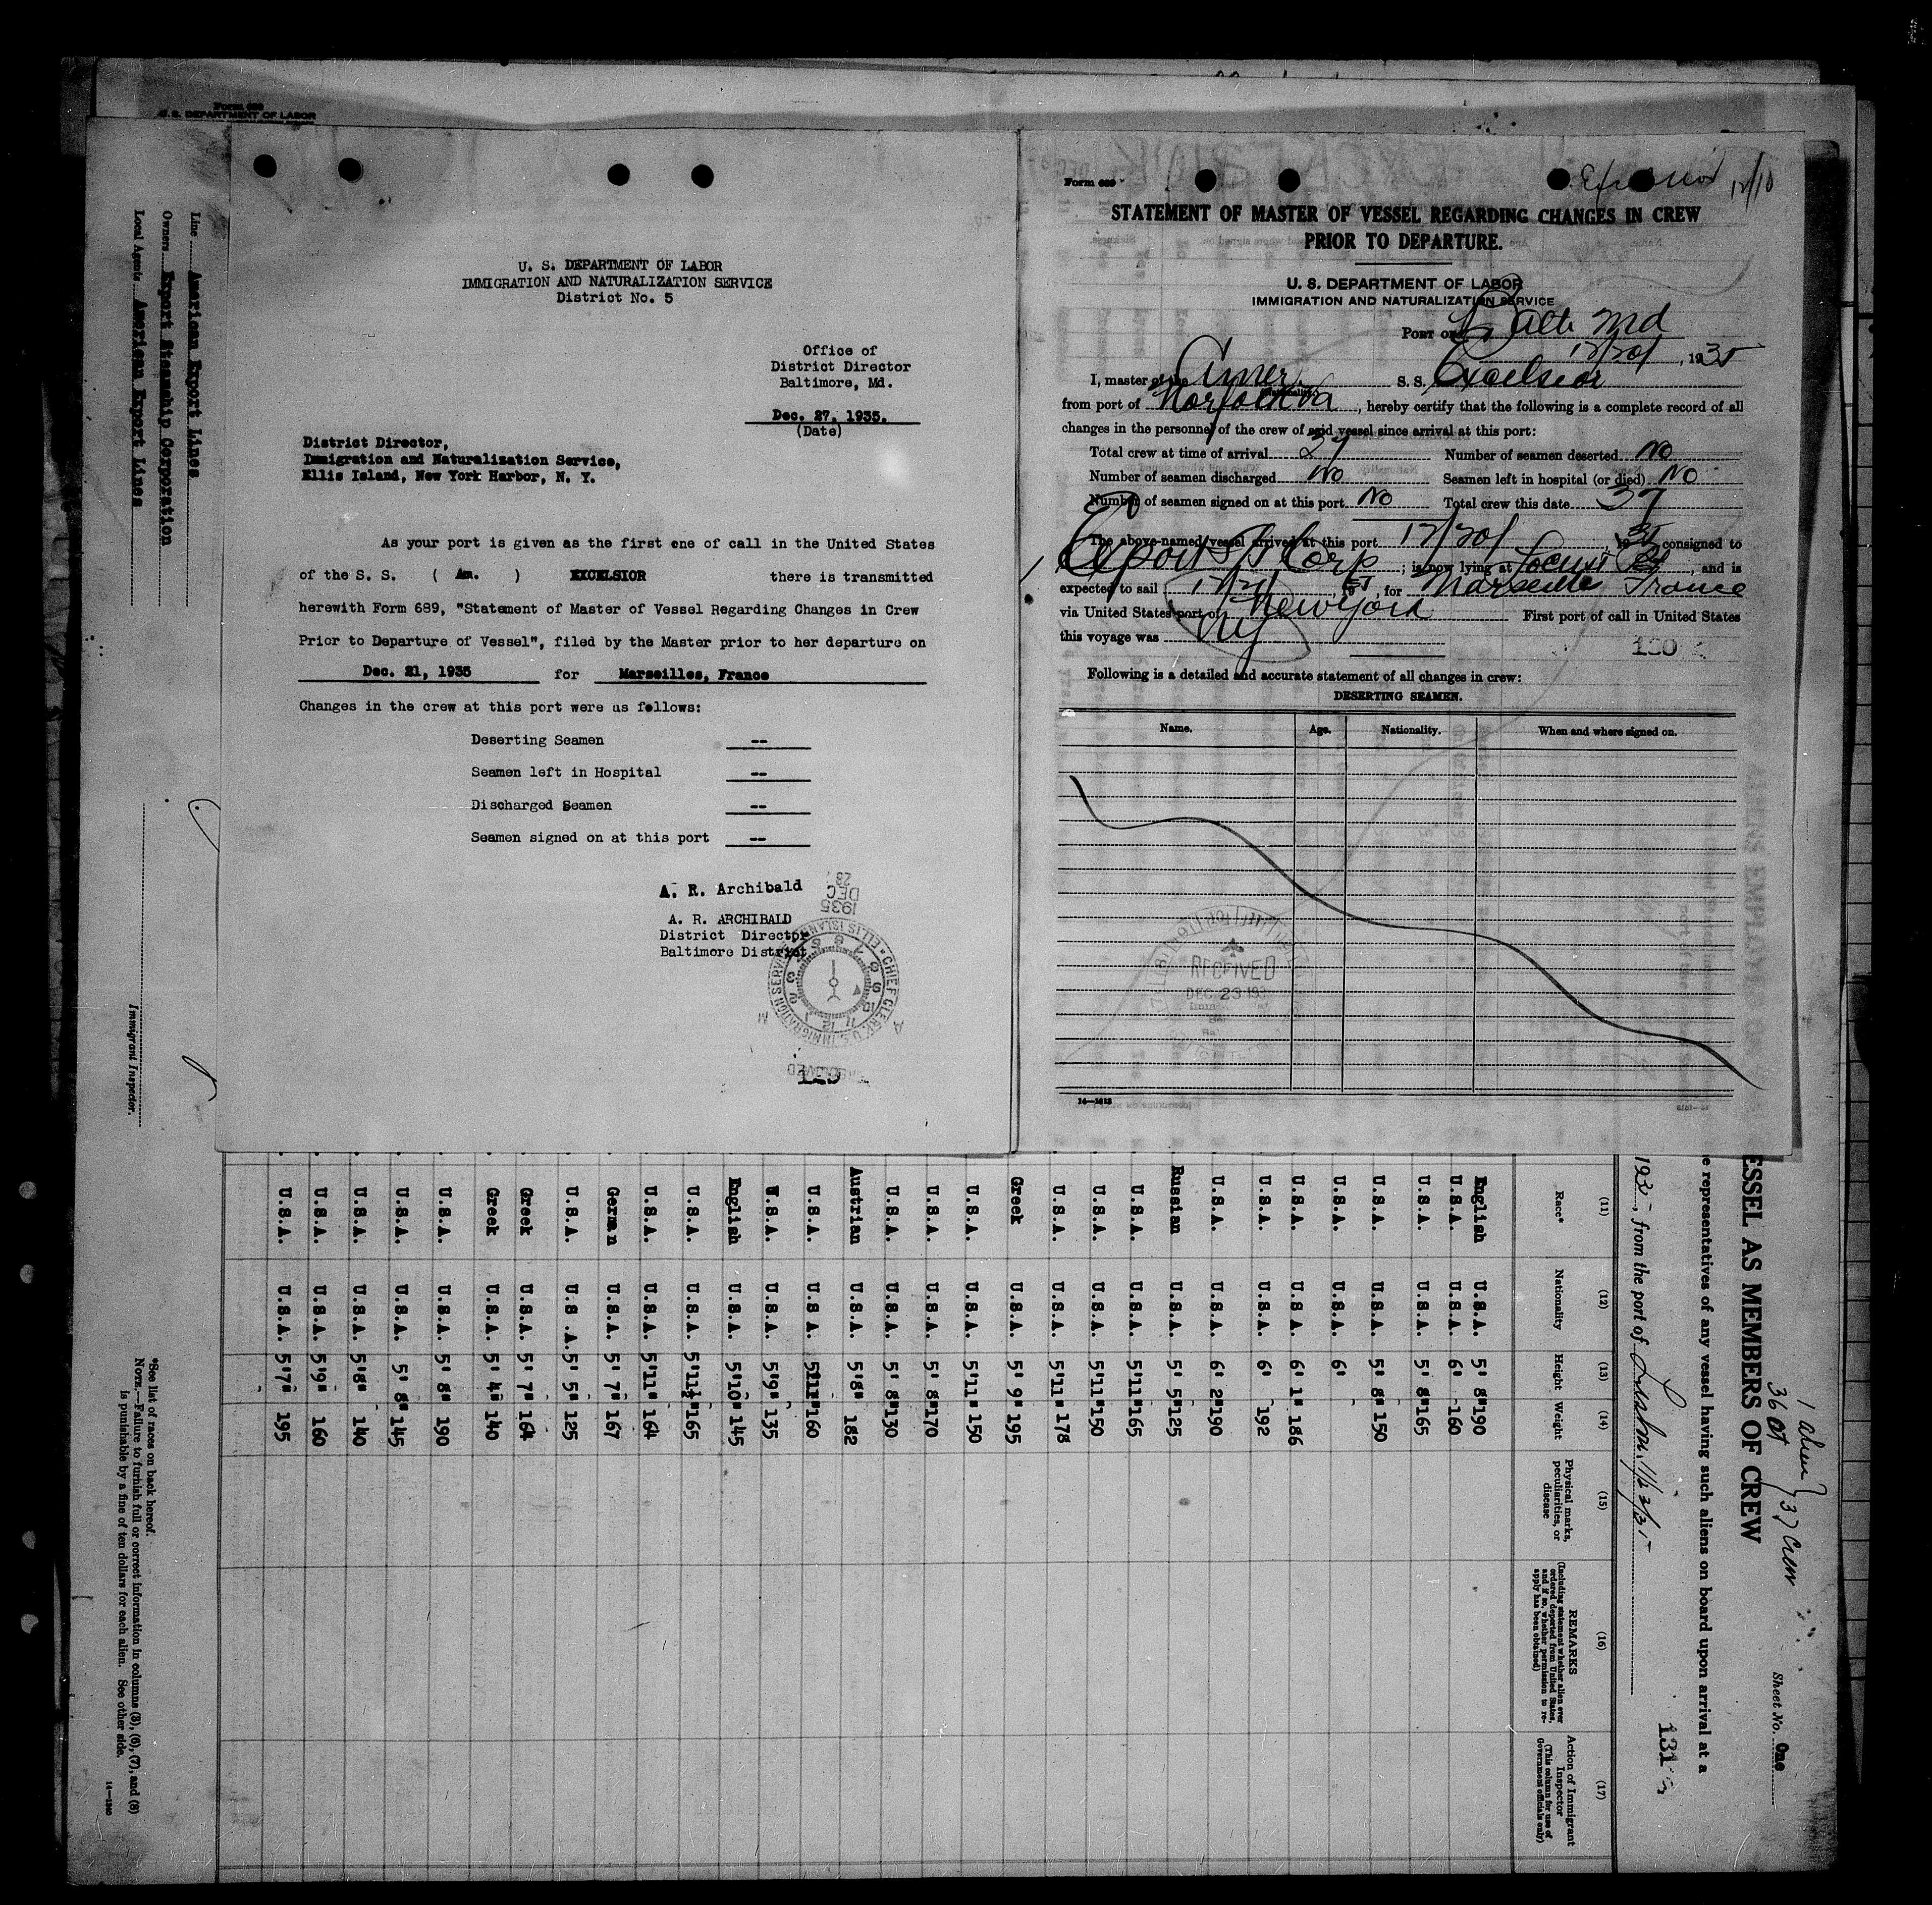 Form 689
U. S. DEPARTMENT OF LABOR
U. S. DEPARTMENT OF LABOR
IMMIGRATION AND NATURALIZATION SERVICE
District No. 5
Office of
District Director
Baltimore, Md.
Dec. 27, 1935.
(Date)
District Director,
Immigration and Naturalization Service,
Ellis Island, New York Harbor, N. Y.
As your port is given as the first one of call in the United States
of the S. S. ( Am. ) EXCELSIOR there is transmitted
herewith Form 689, "Statement of Master of Vessel Regarding Changes in Crew
Prior to Departure of Vessel", filed by the Master prior to her departure on
Dec. 21, 1935 for Marseilles, France
Changes in the crew at this port were as follows:
Deserting Seamen --
Seamen left in Hospital --
Discharged Seamen --
Seamen signed on at this port --
A. R. Archibald
A. R. ARCHIBALD
District Director
Baltimore District
1935
DEC
CHIEF CLERK U.S. IMMIGRATION SERVICE ELLIS ISLAND
Form 689
12/10
STATEMENT OF MASTER OF VESSEL REGARDING CHANGES IN CREW
PRIOR TO DEPARTURE.
U. S. DEPARTMENT OF LABOR
IMMIGRATION AND NATURALIZATION SERVICE
PORT OF Balto Md
12/20, 1935
I, master of the Amer. S. S. Excelsior
from port of Norfolk Va, hereby certify that the following is a complete record of all
changes in the personnel of the crew of said vessel since arrival at this port:
Total crew at time of arrival 37 Number of seamen deserted No
Number of seamen discharged No Seamen left in hospital (or died) No
Number of seamen signed on at this port No Total crew this date 37
The above-named vessel arrived at this port 12/20, 1935 consigned to
Export SS Corp; is now lying at Locust Pt, and is
expected to sail 12/21, 35, for Marseille France
via United States port of New York First port of call in United States
this voyage was NY
130
Following is a detailed and accurate statement of all changes in crew:
DESERTING SEAMEN.
Name. Age. Nationality. When and where signed on.
RECEIVED
DEC 23 193
14—1618
Line American Export Lines
Owners Export Steamship Corporation
Local Agents American Export Lines
Immigrant Inspector.
1 alien
36 } 37 Crew
Sheet No. One
ESSEL AS MEMBERS OF CREW
e representatives of any vessel having such aliens on board upon arrival at a
193, from the port of
131
(11) (12) (13) (14) (15) (16) (17)
Race* Nationality Height Weight Physical marks, peculiarities, or disease REMARKS (Including statement whether alien ever ordered deported from United States, and if so, whether permission to reapply has been obtained) Action of Immigrant Inspector (This column for use of Government officials only)
English U.S.A. 5' 8" 190
U.S.A. U.S.A. 6' 160
U.S.A. U.S.A. 5' 8" 165
U.S.A. U.S.A. 5' 8" 150
U.S.A. U.S.A. 6'
U.S.A. U.S A. 6' 1" 186
U.S.A. U.S.A. 6' 192
U.S.A. U.S.A. 6' 2" 190
Russian U.S.A. 5' 5" 125
U.S.A. U.S.A. 5'11" 165
U.S.A. U.S.A. 5'11" 150
U.S.A. U.S.A. 5'11" 178
Greek U.S.A. 5' 9" 195
U.S.A. U.S.A. 5'11" 150
U.S.A. U.S.A. 5' 8" 170
U.S.A. U.S.A. 5' 8" 130
Austrian U.S.A. 5'8" 182
U.S.A. U.S A. 5'11" 160
U.S.A. U.S.A. 5'9" 135
English U.S.A. 5'10" 145
U.S.A. U.S.A. 5'11½" 165
U.S.A. U.S.A. 5'11" 164
German U.S.A. 5' 7" 167
U.S.A. U.S .A. 5' 5" 125
Greek U.S.A. 5' 7" 164
Greek U.S.A. 5' 4" 140
U.S.A. U.S.A. 5' 8" 190
U.S.A. U.S.A. 5' 8" 145
U.S.A. U.S.A. 5'8" 140
U.S.A. U.S.A. 5'9" 160
U.S.A. U.S.A. 5'7" 195
*See list of races on back hereof.
NOTE.—Failure to furnish full or correct information in columns (3), (6), (7), and (8)
is punishable by a fine of ten dollars for each alien. See other side.
14—1240